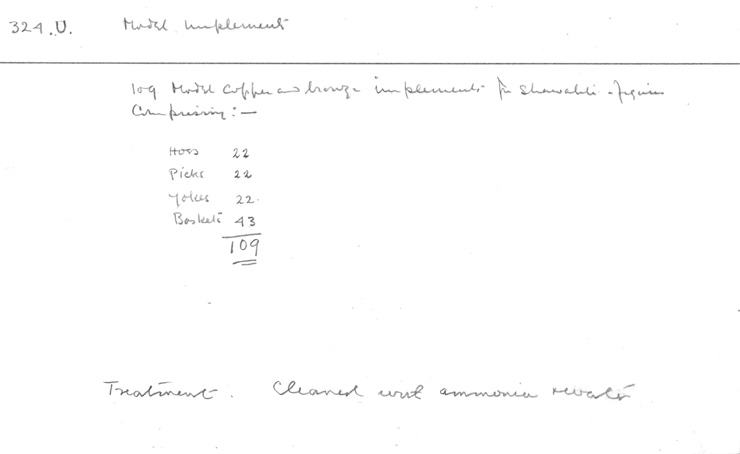 324.U. Model implements
109 Model copper and bronze implements for Shawabti-figures
Comprising:—
Hoes 22
Picks 22
Yokes 22.
Baskets 43
109
Treatment. Cleaned with ammonia & water